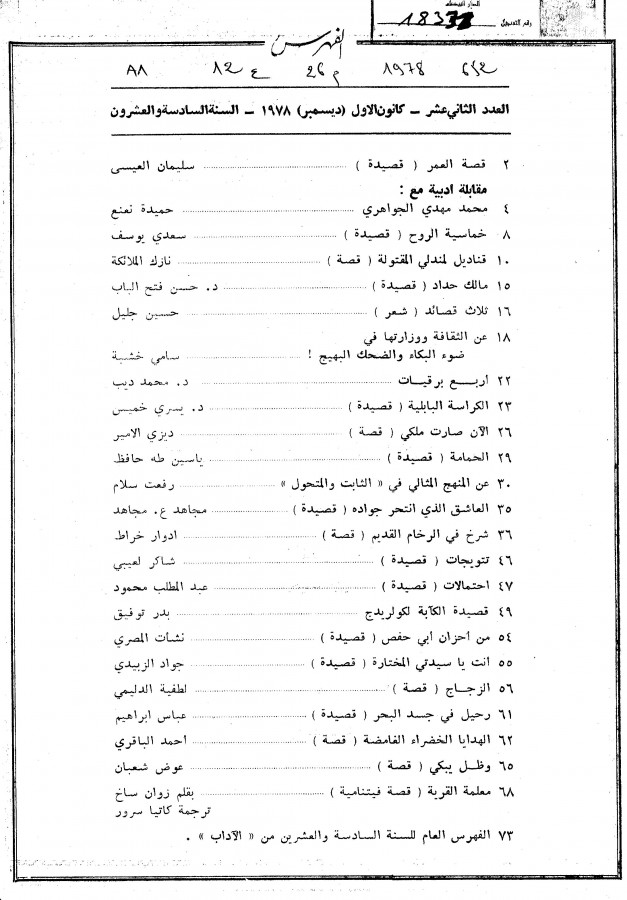 رقم التسجيل
الفهرس
٨٨ 12 ع 26 م 1978
العدد الثاني عشر – كانون الاول (ديسمبر) ١٩٧٨ – السنة السادسة والعشرون
٢ قصة العمر ( قصيدة ) سليمان العيسى
مقابلة ادبية مع :
٤ محمد مهدي الجواهري حميدة نعنع
٨ خماسية الروح ( قصيدة ) سعدي يوسف
١٠ قناديل لمندلي المقتولة ( قصة ) نازك الملائكة
١٥ مالك حداد ( قصيدة ) د. حسن فتح الباب
١٦ ثلاث قصائد ( شعر ) حسين جليل
١٨ عن الثقافة ووزارتها في
ضوء البكاء والضحك البهيج ! سامي خشبة
٢٢ اربع برقيات د. محمد ديب
٢٣ الكراسة البابلية ( قصيدة ) د. يسري خميس
٢٦ الآن صارت ملكي ( قصة ) ديزي الامير
٢٩ الحمامة ( قصيدة ) ياسين طه حافظ
٣٠ عن المنهج المثالي في « الثابت والمتحول » رفعت سلام
٣٥ العاشق الذي انتحر جواده ( قصيدة ) مجاهد ع. مجاهد
٣٦ شرخ في الرخام القديم ( قصة ) ادوار خراط
٤٦ تتويجات ( قصيدة ) شاكر لعيبي
٤٧ احتمالات ( قصيدة ) عبد المطلب محمود
٤٩ قصيدة الكآبة لكولريدج بدر توفيق
٥٤ من أحزان أبي حفص ( قصيدة ) نشأت المصري
٥٥ أنت يا سيدتي المختارة ( قصيدة ) جواد الزبيدي
٥٦ الزجاج ( قصة ) لطفية الدليمي
٦١ رحيل في جسد البحر ( قصيدة ) عباس ابراهيم
٦٢ الهدايا الخضراء الغامضة ( قصة ) احمد الباقري
٦٥ وظل يبكي ( قصة ) عوض شعبان
٦٨ معلمة القرية ( قصة فيتنامية ) بقلم زوان ساخ
ترجمة كاتيا سرور
٧٣ الفهرس العام للسنة السادسة والعشرين من « الآداب » .